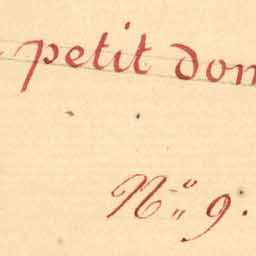 petit don
N.º 9.